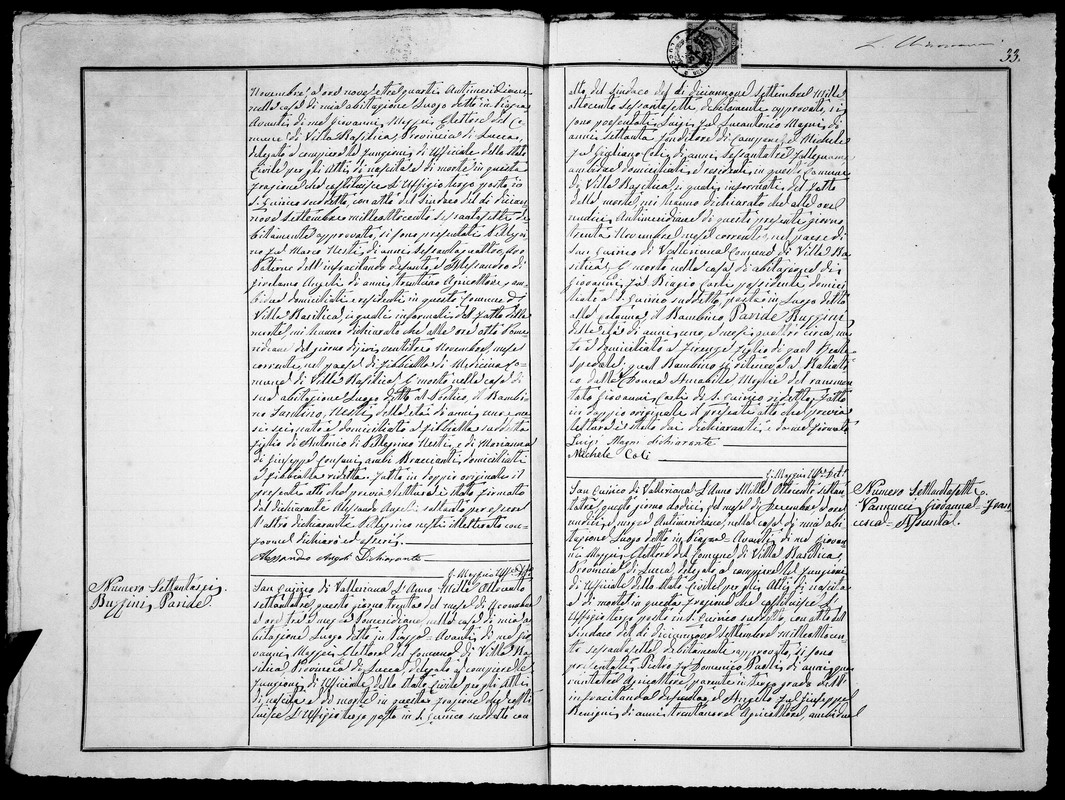 33.
Novembre, a ore nove e tre quarti Antimeridiane
nella casa di mia abitazione Luogo detto in Piazza
Avanti di me Giovanni Elettore del Co
mune di Villa Basilica Provincia di Lucca,
delegato a compiere le funzioni di Uffiziale dello Stato
Civile per gli Atti di nascita e di morte in questa
frazione che costituisce l'Uffizio terzo posto in
S. Quirico suddetto, con atto del Sindaco del di dician
nove Settembre milleottocento sessantasette de
bitamente approvato, si sono presentati Pellegri
no fu Marco Nesti di anni sessantaquattro
Paterno dell'infrascritando defunto, e Alessandro di
Girolamo Angeli di anni trentuno Agricoltore, am
bidue domiciliati e residenti in questo Comune di
Villa Basilica, i quali informati del fatto della
morte, mi hanno dichiarato che alle ore otto Pome
ridiane del giorno di jeri, ventidue Novembre, mese
corrente, nel paese di Pibbialla di Medicina Co=
mune di Villa Basilica, è morto nella casa di
sua abitazione Luogo detto al Portico, il Bambi
no Santino, Nesti, della età di anni, uno e me
si sei, nato e domiciliato a Pibbialla suddetta
figlio di Antonio di Pellegrino Nesti, e di Marianna
di Giuseppe ambi Braccianti, domiciliati
a Pibbialla ridetta. Fatto in doppio originale il
presente atto che previa lettura è stato firmato
dal dichiarante Alessandro Angeli soltanto per essere
l'altro dichiarante Pellegrino Nesti illetterato con=
forme dichiarò ed asserì.
Alessandro Angeli Dichiarante
Numero Settantasei.
Buffini, Paride.
San Quirico di Valleriana L'Anno Mille Ottocento
settantatre, questo giorno trenta del mese di Novembre
a ore tre e mezzo Pomeridiane, nella casa di mia a
bitazione Luogo detto in Piazza= Avanti di me Gio
vanni Elettore del Comune di Villa Ba
silica, Provincia di Lucca, delegato a compiere le
funzioni di Uffiziale dello Stato Civile per gli Atti
di nascita e di morte in questa frazione che costi
tuisce l'Uffizio terzo posto in S. Quirico suddetto con
atto, del Sindaco del di diciannove Settembre Mille
ottocento sessantasette debitamente approvato, si
sono presentati, Luigi, fu Lucantonio Magni, di
anni settanta e Michele
fu Gigliano Coli, di anni, sessantatre falegname
ambidue domiciliati, e residenti, in questo Comune
di Villa Basilica, i quali, informati, del fatto
della morte, mi hanno dichiarato che alle ore
undici, Antimeridiane di questo presente giorno
trenta Novembre mese corrente, nel paese di
San Quirico di Valleriana Comune di Villa Ba
silica, è morto nella casa di abitazione di
Giovanni, fu Biagio Carli possidente domici
liato a S. Quirico suddetto, posta in Luogo detto
alla Colonna, il Bambino Paride Buffini
della età di anni, uno e mesi, quattro circa, na
to e domiciliato a Firenze figlio di quel Reale
Spedale: qual Bambino si riteneva a Baliati
co dalla Donna Amabile Moglie del rammen
tato Giovanni, Carli di S. Quirico ridetto. Fatto
in doppio originale il presente atto che previa
lettura è stato dai dichiaranti, e da me firmato
Luigi Magni dichiarante
Michele Coli
Numero Settantasette.
Vannucci, Giovanna= Fran
cesca= Assunta.
San Quirico di Valleriana L'Anno Mille Ottocento settan
tatre, questo giorno dodici, del mese di Decembre a ore
undici, e mezzo Antimeridiane, nella casa di mia abi
tazione Luogo detto in Piazza. Avanti, di me Giovan
ni Elettore del Comune di Villa Basilica
Provincia di Lucca delegato a compiere le funzioni
di Uffiziale dello Stato Civile per gli Atti, di nascita
e di morte in questa frazione che costituisce l'
Uffizio terzo posto in S. Quirico suddetto, con atto del
Sindaco del di diciannove Settembre milleottocen
to sessantasette debitamente approvato, si sono
presentati, Pietro fu Domenico Paoli, di anni
Agricoltore parente in terzo grado dell'
infrascritanda defunta, ed Angelo fu Giuseppe
Benigni, di anni, trentanove Agricoltore, ambidue